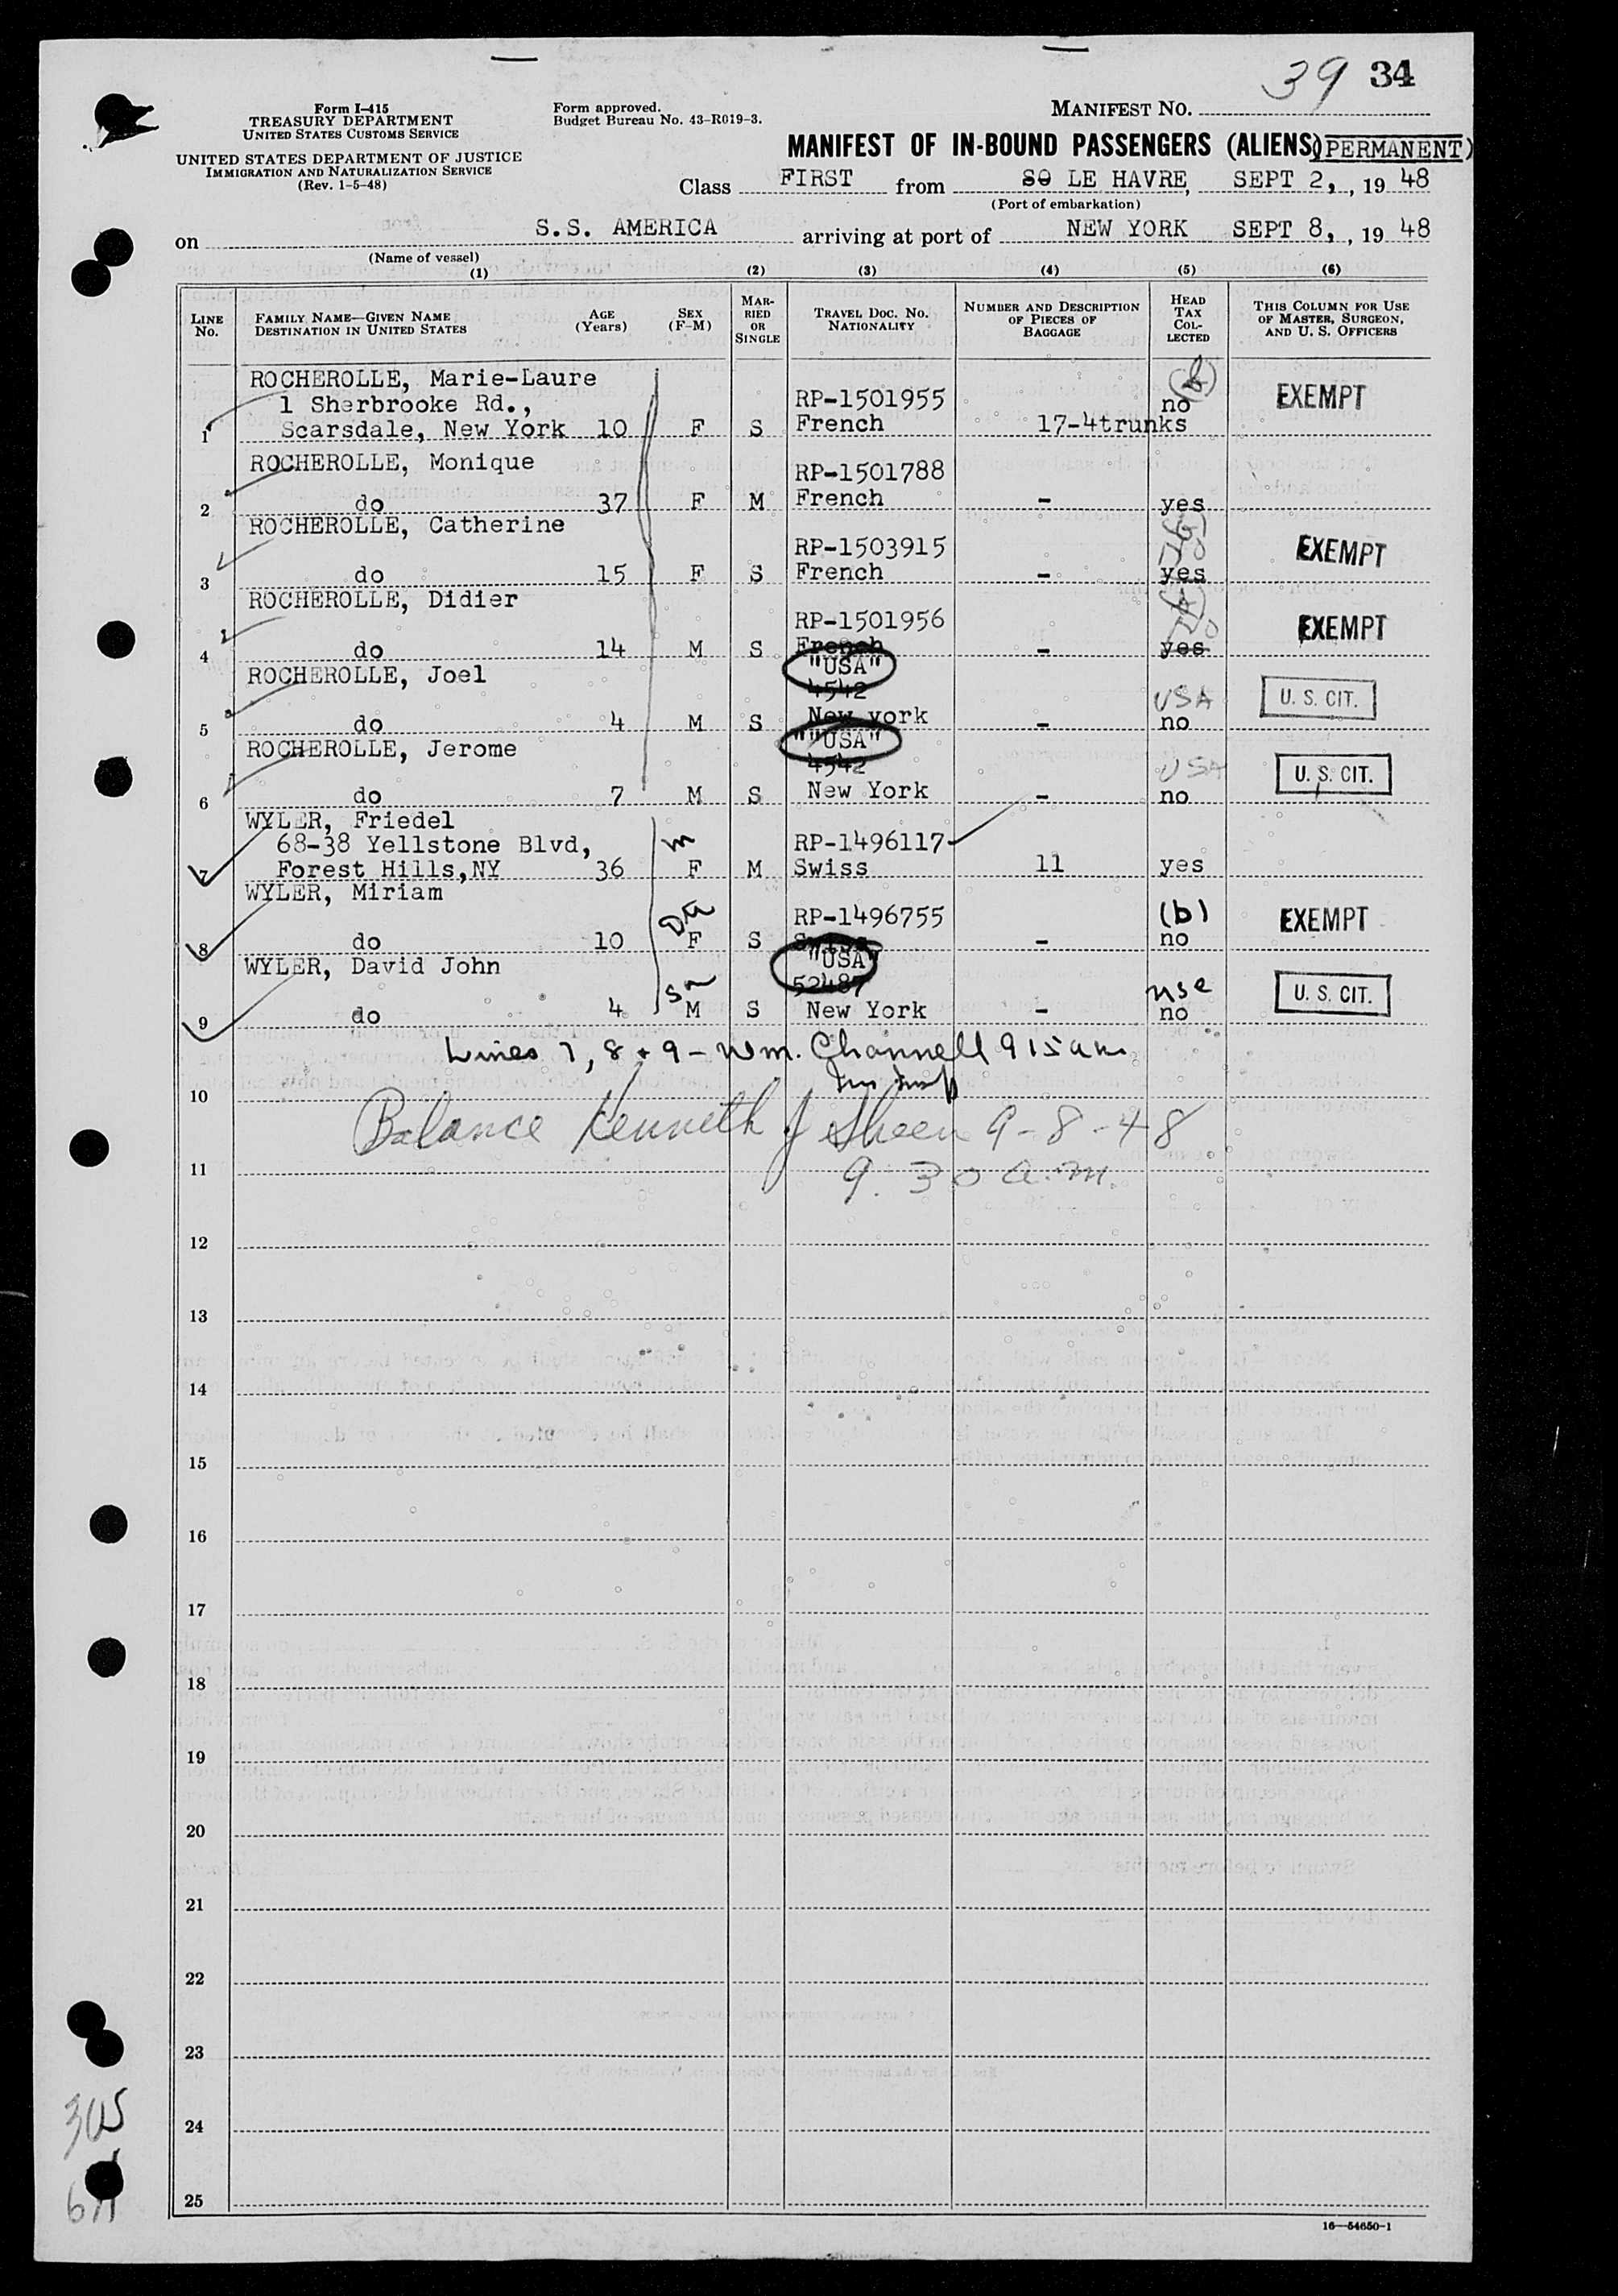 39 34
Form I-415
TREASURY DEPARTMENT
UNITED STATES CUSTOMS SERVICE
UNITED STATES DEPARTMENT OF JUSTICE
IMMIGRATION AND NATURALIZATION SERVICE
(Rev. 1-5-48)
Form approved.
Budget Bureau No. 43-R019-3.
MANIFEST NO.
MANIFEST OF IN-BOUND PASSENGERS (ALIENS) (PERMANENT)
Class FIRST from SO LE HAVRE, SEPT 2, , 19 48
(Port of embarkation)
on S.S. AMERICA arriving at port of NEW YORK SEPT 8, , 19 48
(Name of vessel)
(1) (2) (3) (4) (5) (6)
LINE No. FAMILY NAME—GIVEN NAME DESTINATION IN UNITED STATES AGE (Years) SEX (F-M) MARRIED OR SINGLE TRAVEL DOC. NO. NATIONALITY NUMBER AND DESCRIPTION OF PIECES OF BAGGAGE HEAD TAX COLLECTED THIS COLUMN FOR USE OF MASTER, SURGEON, AND U. S. OFFICERS
ROCHEROLLE, Marie-Laure
1 Sherbrooke Rd., RP-1501955 no EXEMPT
1 Scarsdale, New York 10 F S French 17-4trunks
ROCHEROLLE, Monique RP-1501788
2 do 37 F M French - yes
ROCHEROLLE, Catherine RP-1503915 EXEMPT
3 do 15 F S French - yes
ROCHEROLLE, Didier RP-1501956 EXEMPT
4 do 14 M S French - yes
ROCHEROLLE, Joel "USA" 4542 USA U. S. CIT.
5 do 4 M S New york - no
ROCHEROLLE, Jerome ""USA" 4542 USA U. S. CIT.
6 do 7 M S New York - no
WYLER, Friedel
68-38 Yellstone Blvd, m RP-1496117
7 Forest Hills,NY 36 F M Swiss 11 yes
WYLER, Miriam Da RP-1496755 (b) EXEMPT
8 do 10 F S Swiss - no
WYLER, David John Son "USA" 52487 use U. S. CIT.
9 do 4 M S New York - no
Lines 7, 8 + 9 - Wm. Channell 915am
Imm Insp
10
Balance Kenneth J Sheen 9-8-48
11
9.30 a.m.
12
13
14
15
16
17
18
19
20
21
22
23
24
25
16—54650-1
305